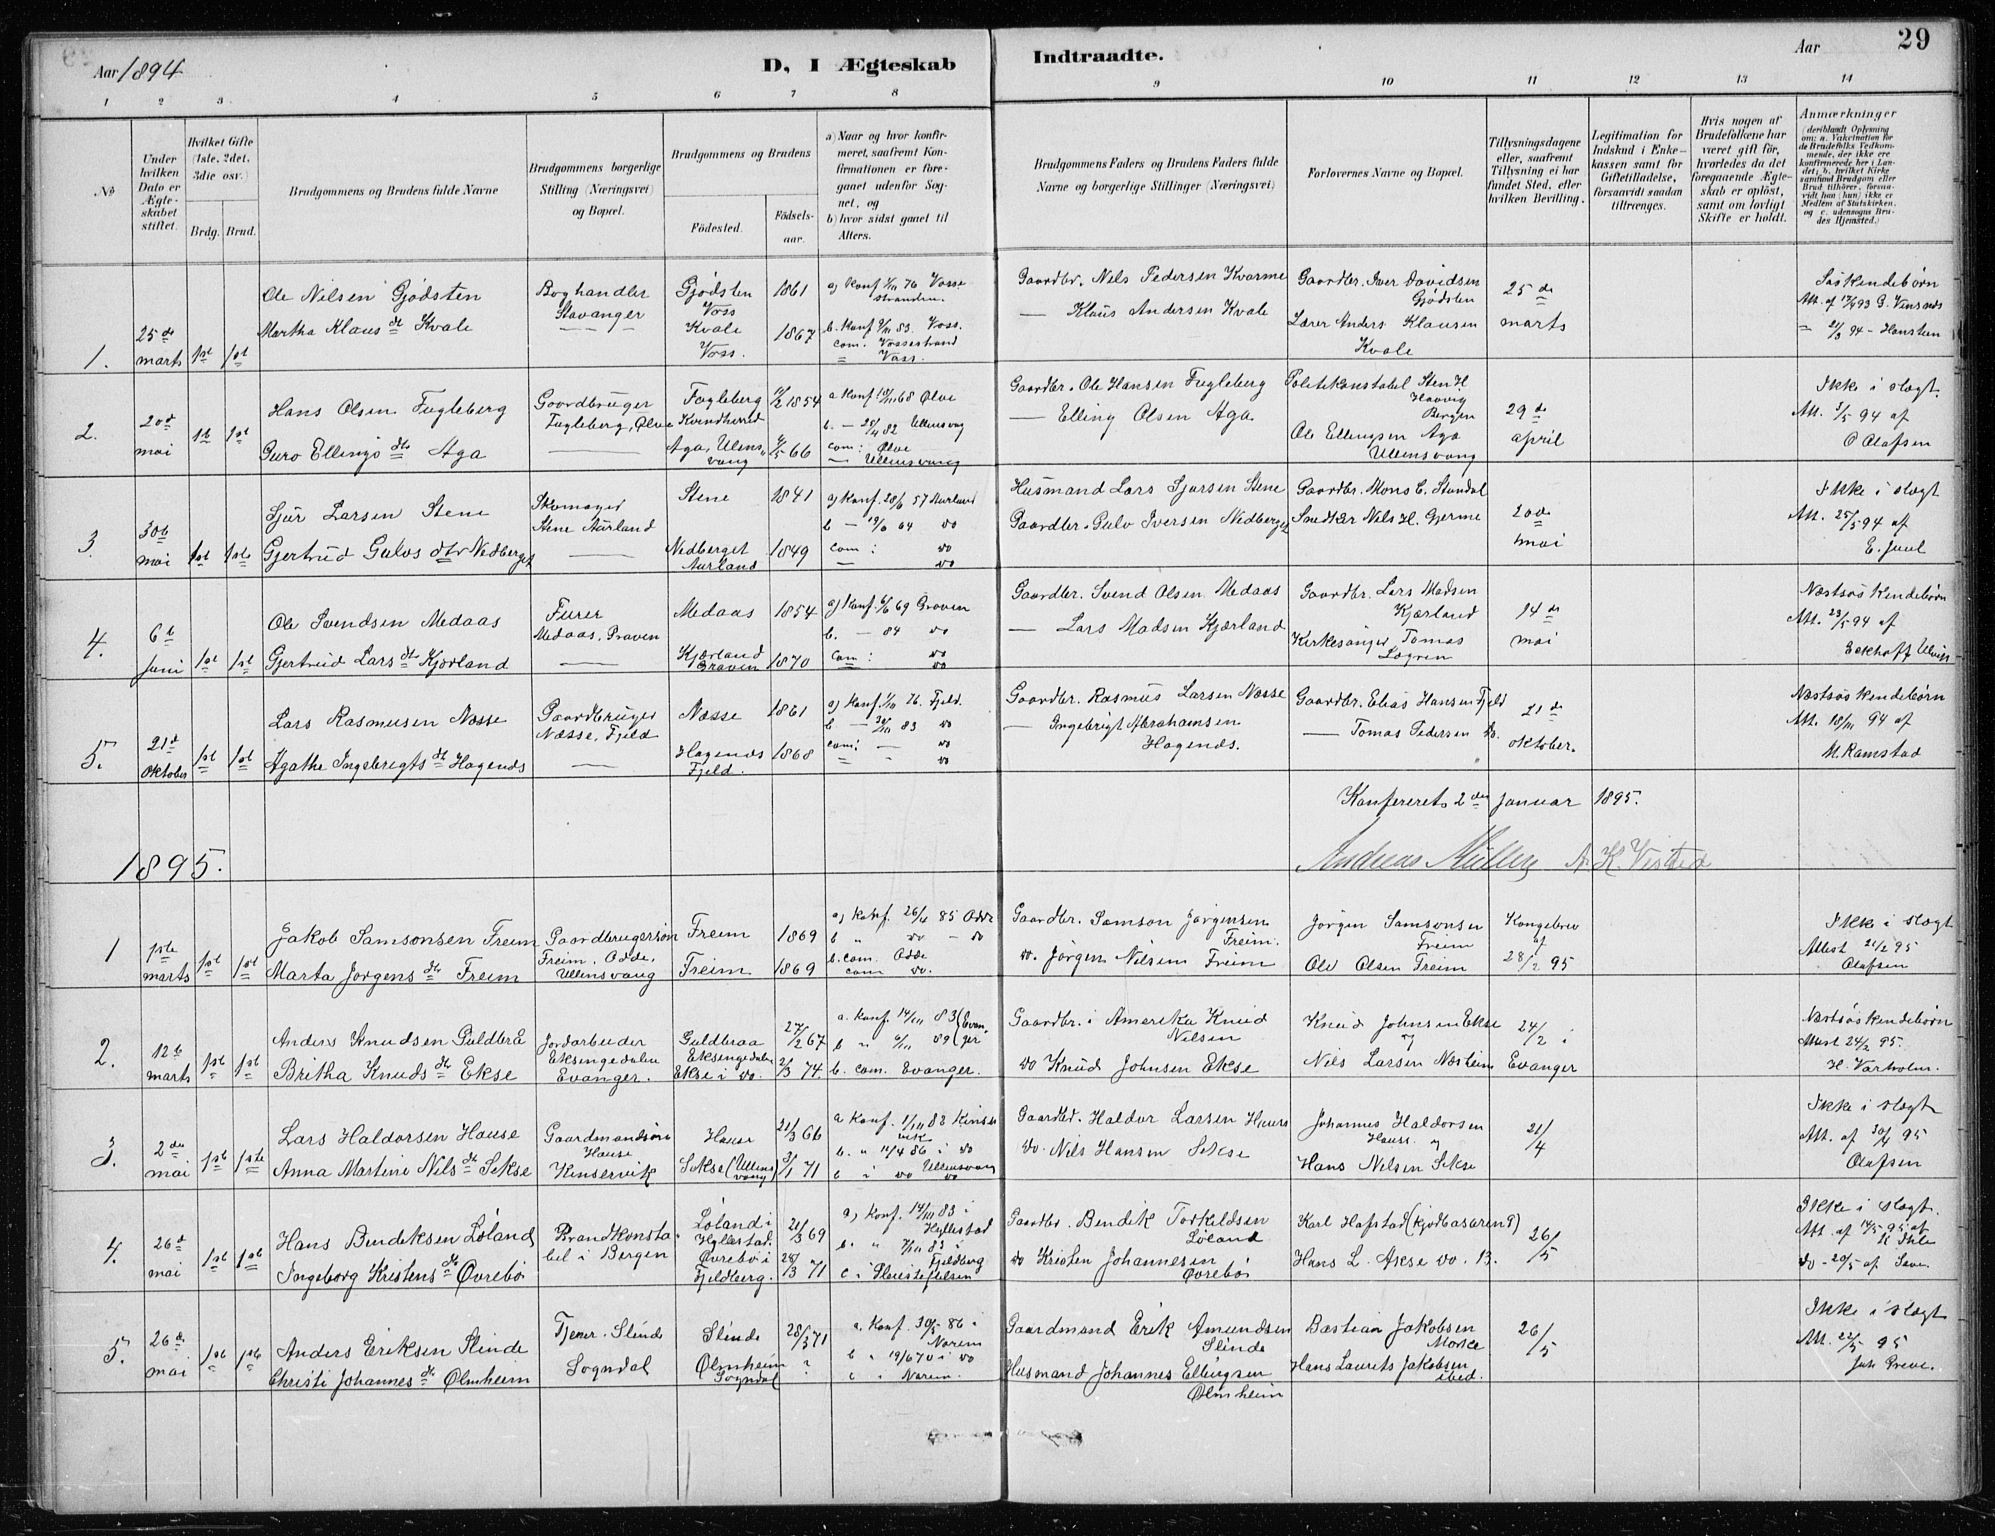 Aar 1894
D, I Ægteskab
Indtraadte.
Aar
29
1 2 3 4 5 6 7 8 9 10 11 12 13 14
No
Under hvilken Dato er Ægteskabet stiftet.
Hvilket Gifte (1ste, 2det, 3die osv.)
Brdg. Brud.
Brudgommens og Brudens fulde Navne
Brudgommens borgerlige Stilling (Næringsvei) og Bopæl.
Brudgommens og Brudens
Fødested.
Fødselsaar.
a) Naar og hvor konfirmeret, saafremt Konfirmationen er foregaaet udenfor Sognet, og
b) hvor sidst gaaet til Alters.
Brudgommens Faders og Brudens Faders fulde Navne og borgerlige Stillinger (Næringsvei)
Forlovernes Navne og Bopæl.
Tillysningsdagene eller, saafremt Tillysning ei har fundet Sted, efter hvilken Bevilling.
Legitimation for Indskud i Enkekassen samt for Giftetilladelse, forsaavidt saadan tiltrænges.
Hvis nogen af Brudefolkene har været gift før, hvorledes da det foregaaende Ægteskab er opløst, samt om lovligt Skifte er holdt.
Anmærkninger
(deriblandt Oplysning om: a. Vakcination for de Brudefolks Vedkommende, der ikke ere konfirmerede her i Landet; b. hvilket Kirkesamfund Brudgom eller Brud tilhører, forsaavidt han (hun) ikke er Medlem af Statskirken, og c. udensogns Brudes Hjemsted.)
1. 25de marts 1st 1st
Ole Nilsen Gjødsten
Martha Klausdt Kvale
Boghandler
Stavanger
Gjødsten Voss 1861
Kvale Voss. 1867
a) Konf 1/10 76 Vossestranden.
b. Konf 83. Voss.
com. Vossestrand
= Voss.
Gaardbr. Nils Pedersen Kvarme
— Klaus Andersen Kvale
Gaardbr. Iver Davidsen Gjødsten
Lærer Anders Klausen Kvale
25de marts
Søskendebørn
2. 20d mai 1st 1st
Hans Olsen Fugleberg
Guro Ellingsdtr Aga
Gaardbruger
Fugleberg, Ølve
Fugleberg Kvindherred 1854
Aga, Ullensvang 66
a Konf 68 Ølve
b. — 82 Ullensvang
com: Ølve
— Ullensvang
Gaardbr. Ole Hansen Fugleberg
— Elling Olsen Aga
Politikonstabel Sten H. Haavig Bergen
Ole Ellingsen Aga Ullensvang
29de april
Ikke i slægt.
Att. 3/5 94 af
O Olafsen
3. 30te mai 1st 1ste
Sjur Larsen Stene
Gjertrud Gulvsdtr Nedberget
Skomager
Stene Aurland
Stene 1841
Nedberget Aurland 1849
a) Konf. 57 Aurland
b — 64 do
com: do
— do
Husmand Lars Sjursen Stene
Gaardbr. Gulv Iversen Nedberget
Gaardbr. Mons E. Stundal
Snedker Nils H. Gjerme
20de mai
Ikke i slægt
Att. 25/5 94 af
E. Juul
4. 6te Juni 1st 1st
Ole Svendsen Medaas
Gjertrud Larsdtr Kjærland
Furer
Medaas, Graven
Medaas 1854
Kjærland Graven 1870
a) Konf. 69 Graven
b. — 84 do
com: do
do
Gaardbr. Svend Olsen Medaas
— Lars Madsen Kjærland
Gaardbr. Lars Madsen Kjærland
Kirkesanger Tomas Lægren
14de mai
Næstsøskendebørn
Att. 23/5 94 af
Eckhoff Ulvik
5. 21d oktober 1st 1st
Lars Rasmusen Næsse
Agathe Ingebrigtsdt Hagenæs
Gaardbruger
Næsse, Fjeld
Næsse 1861
Hagenæs Fjeld. 1868
a) Konf. 76. Fjeld.
b — 83 do
com: — do
= " do
Gaardbr. Rasmus Larsen Næsse
— Ingebrigt Abrahamsen Hagenæs.
Gaardbr. Elias Hansen Fjeld
— Tomas Pedersen do.
21de oktober.
Næstsøskendebørn
Att. 18/11 94 af
M. Ramstad
Konfereret 2den januar 1895.
Andreas Müller
K. Visted
1895.
1 1ste marts 1st 1st
Jakob Samsonsen Freim
Marta Jørgensdtr Freim
Gaardbrugersøn
Freim. Odde.
Ullensvang
Freim 1869
Freim 1869
a) Konf. 26/4 85 Odde
b " do - do
b. com. Odde
com do.
Gaardbr. Samson Jørgensen Freim.
do. Jørgen Nilsen Freim
Jørgen Samsonsen Freim
Ole Olsen Freim
Kongebrev
af
28/2 95
Ikke i slægt
Attest 21/2 95
Olafsen
2. 12te marts 1st 1st
Anders Knudsen Guldbrå
Britha Knudsdtr Ekse
Jordarbeider
Eksingedalen
Evanger.
Guldbraa Eksingedalen 27/2 67
Ekse i do. 2/3 74
a. Konf. 14/10 83 (Evanger
b " 89
b. com. Evanger.
Gaardbr. i Amerika Knud Nilsen
do Knud Johnsen Ekse
Knud Johnsen Ekse
og
Nils Larsen Næsheim
24/2 i
Evanger
Næstsøskendebørn
Attest 24/2 95.
H. Varholm.
3. 2den mai 1ste 1ste
Lars Haldorsen Hause
Anna Martine Nilsdt Sekse
Gaardmandssøn
Hause
Kinservik
Hause 21/3 66
Sekse (Ullensvang) 3/1 71
a Konf. 82 Kinservik
b. " 11/4 86 i do
c i do Ullensvang
do
Gaardbr. Haldor Larsen Hause
do. Nils Hansen Sekse
Johannes Haldorsen Hause og
Hans Nilsen Sekse
21/4
Ikke i slægt
Att. af 30/4 95
Olafsen
4. 26d mai 1st 1ste
Hans Bendiksen Løland
Ingeborg Kristensdtr Øvrebø
Brandkonstabel i Bergen
Løland i Hyllestad. 21/3 69
Øvrebø i Fjeldberg. 28/3 71
a) Konf. 83 i Hyllestad
b. " 83 i Fjeldberg
Gaardbr. Bendik Torkildsen Løland
do Kristen Johannesen Øvrebø
Karl Hafstad (Kjødbasarene 9)
Hans L. Akse do. B.
26/5
Ikke i slægt.
do - 20/5 af
5. 26de mai 1st 1ste
Anders Eriksen Slinde
Christi Johannesdt Ølmheim
Tjener. Slinde
Sogndal
Slinde 28/3 71
Ølmheim Sogndal ?
a. Konf. 30/5 86 i Norem
b " i do
c " Norem.
Gaardmand Erik Amundsen Slinde
Husmand Johannes Ellingsen Ølmheim
Bastian Jakobsen
Hans Laurits Jakobsen ibid.
26/5
Ikke i slægt
Att. 22/5 95